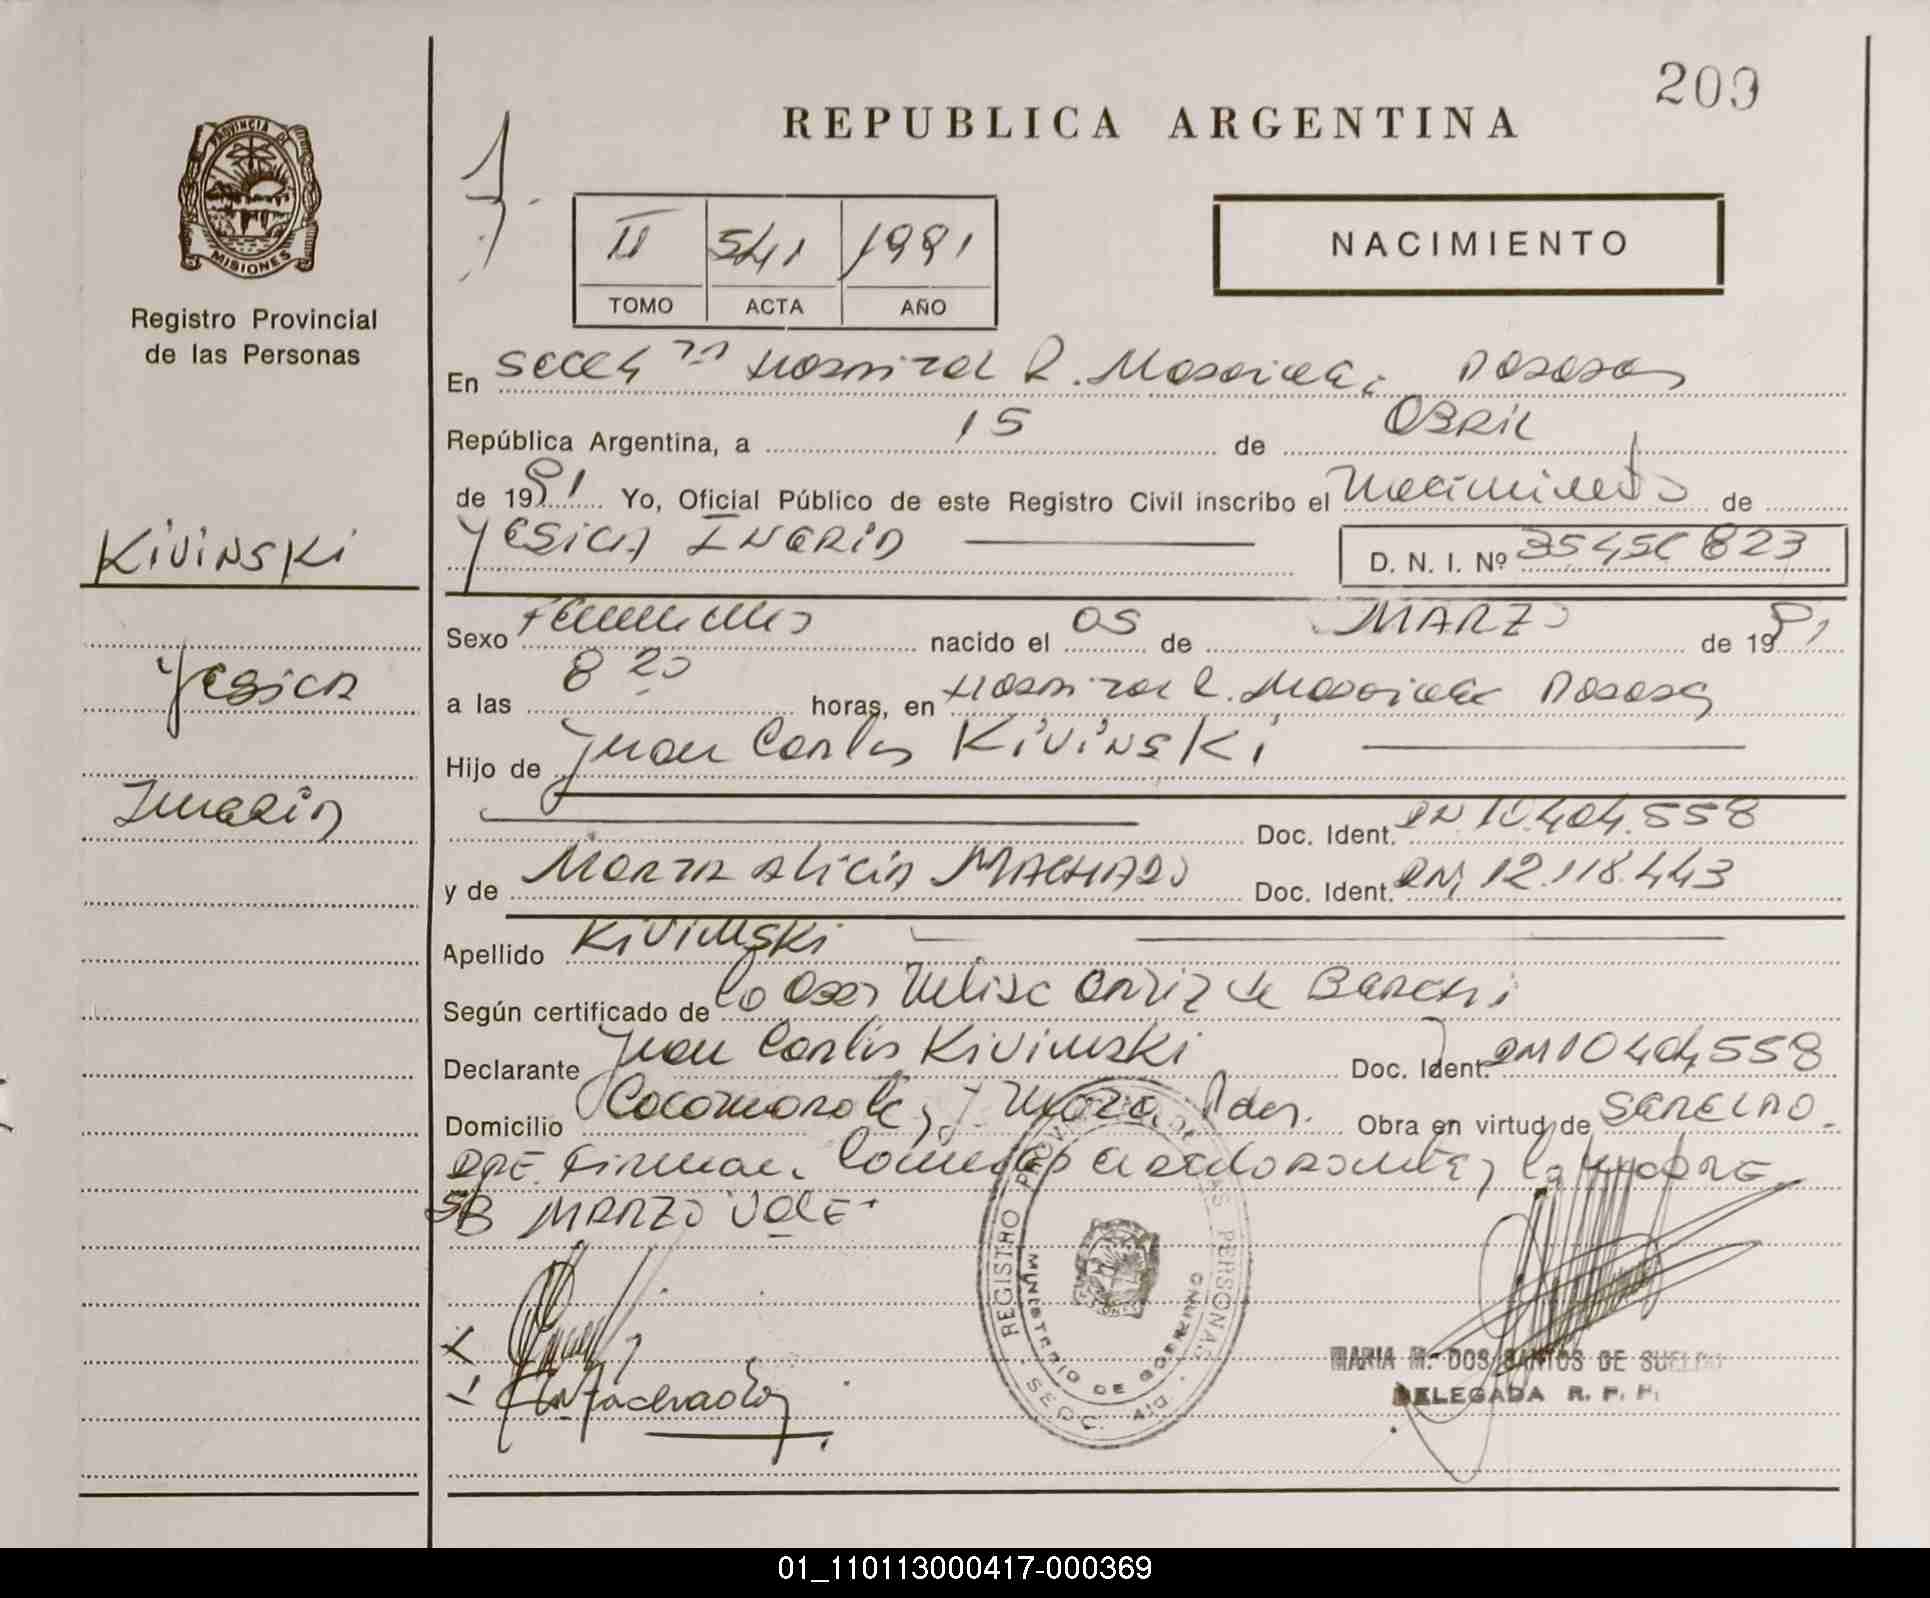 209
REPUBLICA ARGENTINA
PROVINCIA DE
MISIONES
Registro Provincial
de las Personas
II 541 1991
TOMO ACTA AÑO
NACIMIENTO
En Secc 4 Hospital R. Madariaga Posadas
República Argentina, a 15 de ABRIL
de 1991 Yo, Oficial Público de este Registro Civil inscribo el Nacimiento de
YESICA INGRID D. N. I. Nº 35456823
Kivinski
Yesica
Ingrid
Sexo Femenino nacido el 05 de MARZO de 1991
a las 8 20 horas, en Hospital R. Madariaga Posadas
Hijo de Juan Carlos Kivinski
Doc. Ident. DNI 10.404.558
y de Marta Alicia MACHADO Doc. Ident. DNI 12.118.443
Apellido Kivinski
Según certificado de la Obst Ortiz de
Declarante Juan Carlos Kivinski Doc. Ident. DNI 10404558
Domicilio y Pdas. Obra en virtud de SER EL PADRE
. Firman la MADRE
SB MARZO VALE
REGISTRO PROVINCIAL DE LAS PERSONAS
MINISTERIO DE GOBIERNO
Machado
MARIA M. DOS SANTOS DE SUELDO
DELEGADA R. P. P.
01_110113000417-000369